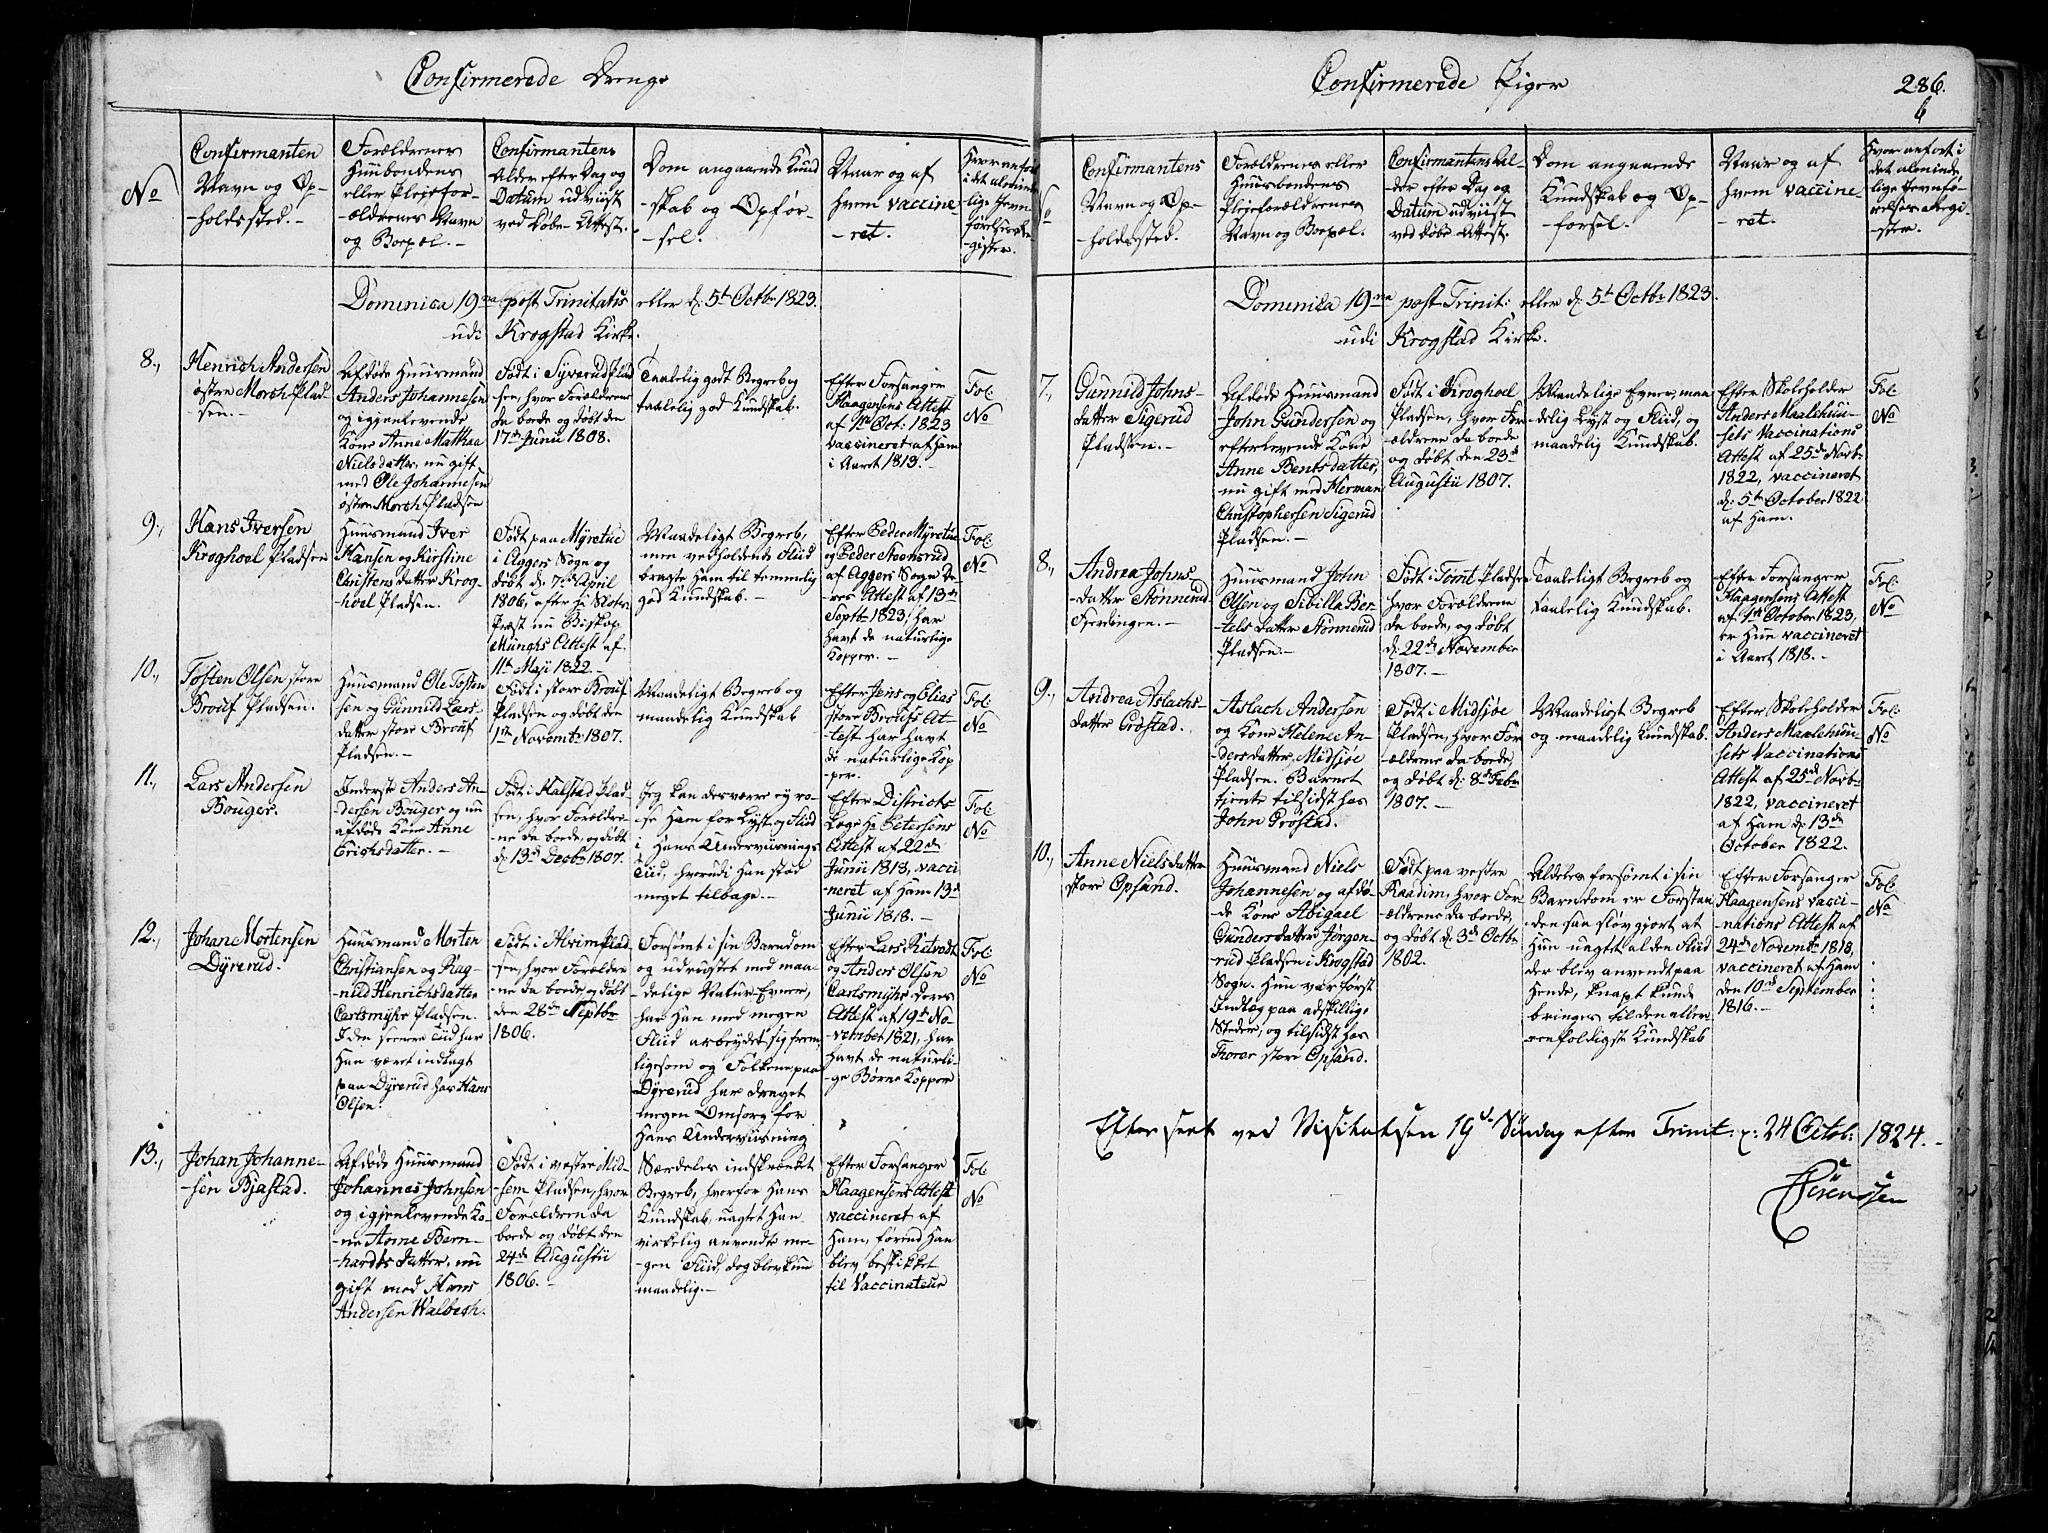 Confirmerede Drenge
No
Confirmanten
Navn og Op-
-holdssted.-
Forældrenes
Huusbondens
eller Plejefor-
-ældrenes Navn
og Boepæl.-
Confirmantens
Alder efter Dag og
Datum udviist
ved Døbe-Attest.
Dom angaaende Kund
-skab og Opfør-
-sel.
Naar og af
hvem vaccine-
-ret.
Hvor anført
i det almin
lige Jevn
førelsesRe-
-gister.
Dominica 19na post Trinitatis eller d: 5t Octbr 1823.
udi Krogstad Kirke.
8.,
Henrich Andersen
østre Morch Plad-
sen.-
Afdøde Huusmand
Anders Johannesen
og igjenlevende
Kone Anne Mathea
Nielsdatter, nu gift
med Ole Johannesen
østre Morch Pladsen
Født i Syverud Plad
sen, hvor Forældrene
da boede og døbt den
17de Junii 1808.
Taalelig godt Begreb og
taalelig god Kundskab.
Efter Forsanger
Haagensens Attest
af 1ste Oct: 1823
vaccineret af ham
i Aaret 1813.-
Fol.
No
9.,
Hans Iversen
Kroghoel Pladsen
Huusmand Iver
Hansen og Kirstine
Christensdatter Krog-
hoel Pladsen.
Født paa Myretue
i Aggers Sogn og
døbt d: 7de April
1806, efter Hr Slots
Præst nu Biskop
Munchs Attest af
11te Maji 1822.-
Maadeligt Begreb,
men vedholdende Fliid
bragte ham til temmelig
god Kundskab.-
Efter Peder Myretue
og Peder Steensrud
af Aggers Sogn De-
res Attest af 13de
Septbr 1823, har
havt de naturlige
Kopper.-
Fol.
No
10.,
Tosten Olsen store
Brouf Pladsen.
Huusmand Ole Tosten
sen og Gunnild Lars-
datter store Brouf
Pladsen.-
Født i store Brouf
Pladsen og døbt den
1ste Novembr 1807.
Maadeligt Begreb og
maadelig Kundskab
Efter Jens og Elias
store Broufs At-
-test har havt
de naturlige Kop
-per.
Fol.
No
11.,
Lars Andersen
Bouger.
Inderste Anders An-
dersen Bouger og nu
afdøde Kone Anne
Erichsdatter.-
Født i Halstad Plad-
sen, hvor Forældre-
ne da boede, og døbt
d: 13de Decbr 1807.
Jeg kan desværre ej ro-
-se ham for Lyst og Fliid
i hans Underviisnings
Tiid, hvorudi han stod
meget tilbage.-
Efter Districts
Læge Hr Petersens
Attest af 22de
Junii 1818, vacci
neret af ham 13de
Junii 1818.-
Fol.
No
12.,
Johan Mortensen
Dyrerud.
Huusmand Morten
Christiansen og Rag-
-nild Henrichsdatter
Carlsmyhr Pladsen.
I den seenere Tiid har
han været indlagt
paa Dyrerud hos Hans
Olsen.
Født i Alvim Plad
-sen, hvor Forældre
-ne da boede, og døbt
den 28de Septbr
1806.
Forsømt i sin Barndom
og udrustet med maa-
delige Natur-Evner,
har han med megen
Fliid arbeydet sig frem,
ligesom og Folkene paa
Dyrerud har draget
megen Omsorg for
hans Underviisning
Efter Lars
og Anders Olsen
Carlsmyhr deres
Attest af 19de No-
vember 1821, har
havt de naturli-
-ge Børne Kopper
Fol.
No
13.,
Johan Johanne-
-sen Bjastad.
Afdøde Huusmand
Johannes Johnsen
og igjenlevende Ko-
-ne Anne Bern-
-hardtsdatter, nu
gift med Hans
Andersen Walbech.
Født i vestre Mid-
sem Pladsen, hvor
Forældren da
boede og døbt den
24de Augustii
1806.-
Særdeles indskrænket
Begreb, hvorfor hans
Kundskab, uagtet han
virkelig anvendte me-
-gen Fliid, dog blev kun
maadelig.-
Efter Forsanger
Haagensens Attest
vaccineret af
ham, førend han
blev beskikket
til Vaccinateur
Fol.
No
Confirmerede Piger
286.
No
Confirmantens
Navn og Op-
-holdssted.
Forældrenes eller
Huusbondens
Plejeforældrenes
Navn og Boepæl.
Confirmantens Al-
-der efter Dag og
Datum udviist
ved Døbe-Attest.
Dom angaaende
Kundskab og Op-
-førsel.
Naar og af
hvem vaccine-
-ret.
Hvor anført i
det alminde
lige Jevnfø-
-relses-Regi-
-ster.
Dominica 19na post Trinit: eller d: 5t Octbr 1823.
udi Krogstad Kirke.
7.,
Gunnild Johns-
datter Sigerud
Pladsen.-
Afdøde Huusmand
John Gundersen og
efterlevende Kone
Anne Berntsdatter,
nu gift med Herman
Christophersen Sigerud
Pladsen.-
Født i Kroghoel
Pladsen, hvor For-
ældrene da boede
og døbt den 23de
Augustii 1807.
Maadelige Evner, maa
delig Lyst og Fliid, og
maadelig Kundskab.
Efter Skoleholder
Anders Maalehuu-
sets Vaccinations
Attest af 25de Novbr
1822, vaccineret
d: 5te October 1822
af ham.
Fol.
No
8.,
Andrea Johns
-datter Stønnerud
Fjerdingen.-
Huusmand John
Olsen og Sibilla Ber-
-telsdatter Stønnerud
Pladsen.-
Født i Tomt Pladsen
hvor Forældrene
da boede, og døbt
d: 22de November
1807.-
Taaleligt Begreb og
taalelig Kundskab.
Efter Forsanger
Haagensens Attest
af 1ste October 1823,
er hun vaccineret
i Aaret 1818.-
Fol.
No
9.,
Andrea Aslachs-
datter Grøstad.
Aslach Andersen
og Kone Helene An-
dersdatter, Midsjøe
Pladsen. Barnet
tjente tilsidst hos
John Grøstad.
Født i Midsjøe
Pladsen, hvor For
ældrene da boede,
og døbt d: 8de Febr
1807.-
Maadeligt Begreb
og maadelig Kundskab.
Efter Skoleholder
Anders Maalehuu-
sets Vaccinations
Attest af 25de Novbr
1822, vaccineret
af ham d: 13de
October 1822.
Fol.
No
10.,
Anne Nielsdatter
store Opsand.
Huusmand Niels
Johannesen og afdø-
-de Kone Abigael
Gundersdatter Jørgen-
rud Pladsen i Krogstad
Sogn. Hun var først
Indlæg paa adskillige
Steder, og tilsidst hos
Thorer store Opsand.
Født paa vestre
Kaadim, hvor For
ældrene da boede,
og døbt d: 3de Octbr
1802.
Aldeles forsømt i sin
Barndom er Forstan
-den saa sløvgjort at
hun uagtet al den Fliid
der blev anvendt paa
hende, knapt kunde
bringes til den aller
eenfoldigste Kundskab
Efter Forsanger
Haagensens vacci-
nations Attest af
24de Novembr 1818,
vaccineret af ham
den 10de September
1816.-
Fol.
No
Efterseet ved Visitatsen 19de Søndag efter Trinit: d: 24 Octob: 1824.
Sørenssen